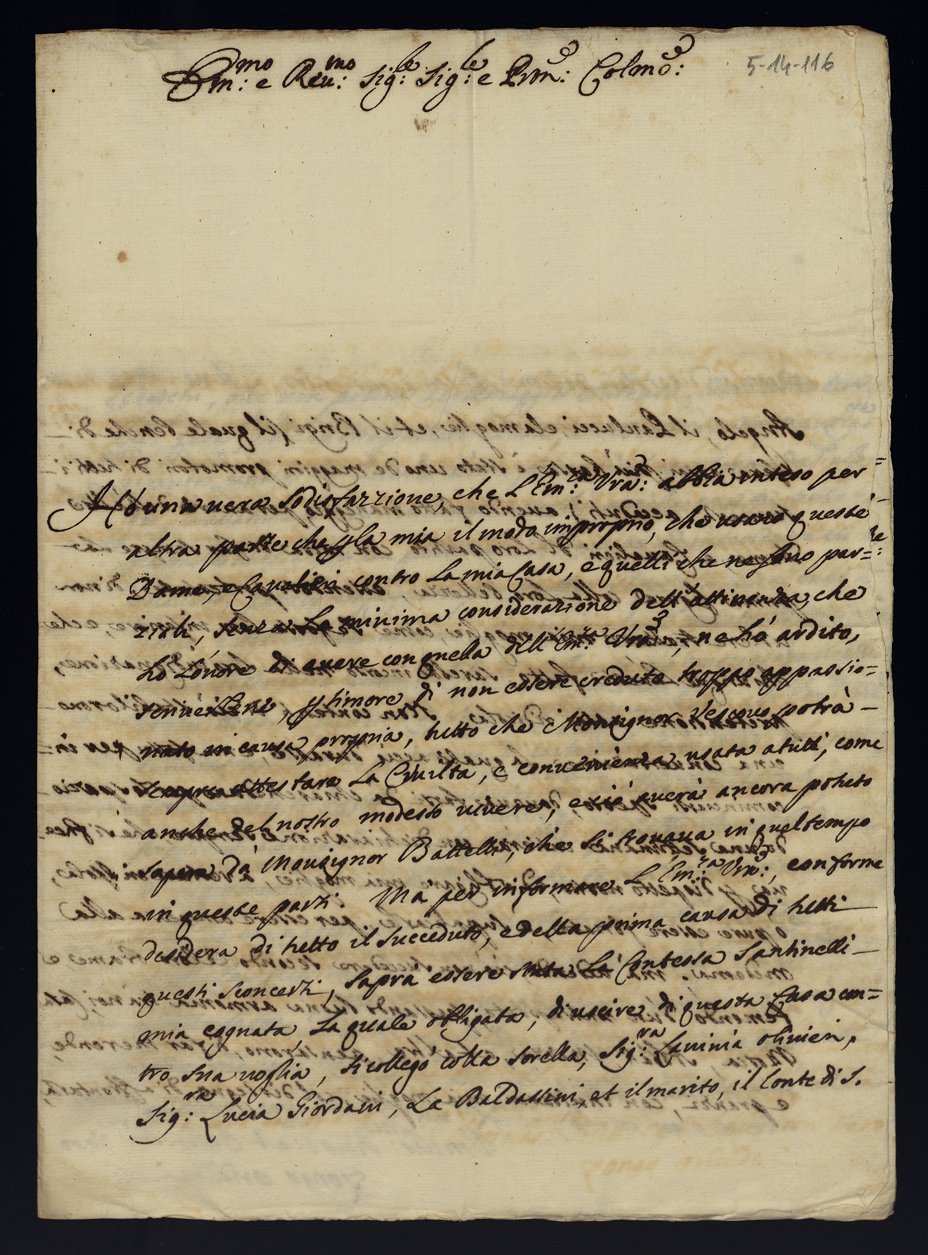 Em:mo e Reu:mo Sig:le Sig:le e Prn:e Colmo:e
5-14-116
Hò una vera sodisfazzione, che L'Em:za Vra: abbia inteso per=
altra parte che p la mia il modo improprio, che usano queste
Dame, e Cavalieri contro La mia Casa, e quelli che ne sono par=
ziali, senza La minima considerazione dell'attinenza, che
hò L'onore di avere con quella dell'Em:za Vra, ne hò ardito,
scriverLene, p timore di non essere creduto troppo appassio=
nato in causa propria, tutto che Monsignor Vescovo potrà
sempre attestare La Civiltà, e convenienza usata a tutti, come
anche del nostro modesto vivere, e ciò averà ancora potuto
sapere dà Monsignor Battelli, che si trovava in quel tempo
in queste parti. Ma per informare L'Em:za Vra:, conforme
desidera di tutto il succeduto, e della prima causa di tutti
questi sconcerti, saprà essere stata La Contessa Santinelli
mia cognata, La quale obligata, di uscire di questa Casa con=
tro sua voglia, si collegò colla sorella, Sig:ra Lavinia olivieri,
Sig:ra Lucia Giordani, La Baldassini, et il marito, il Conte di S.